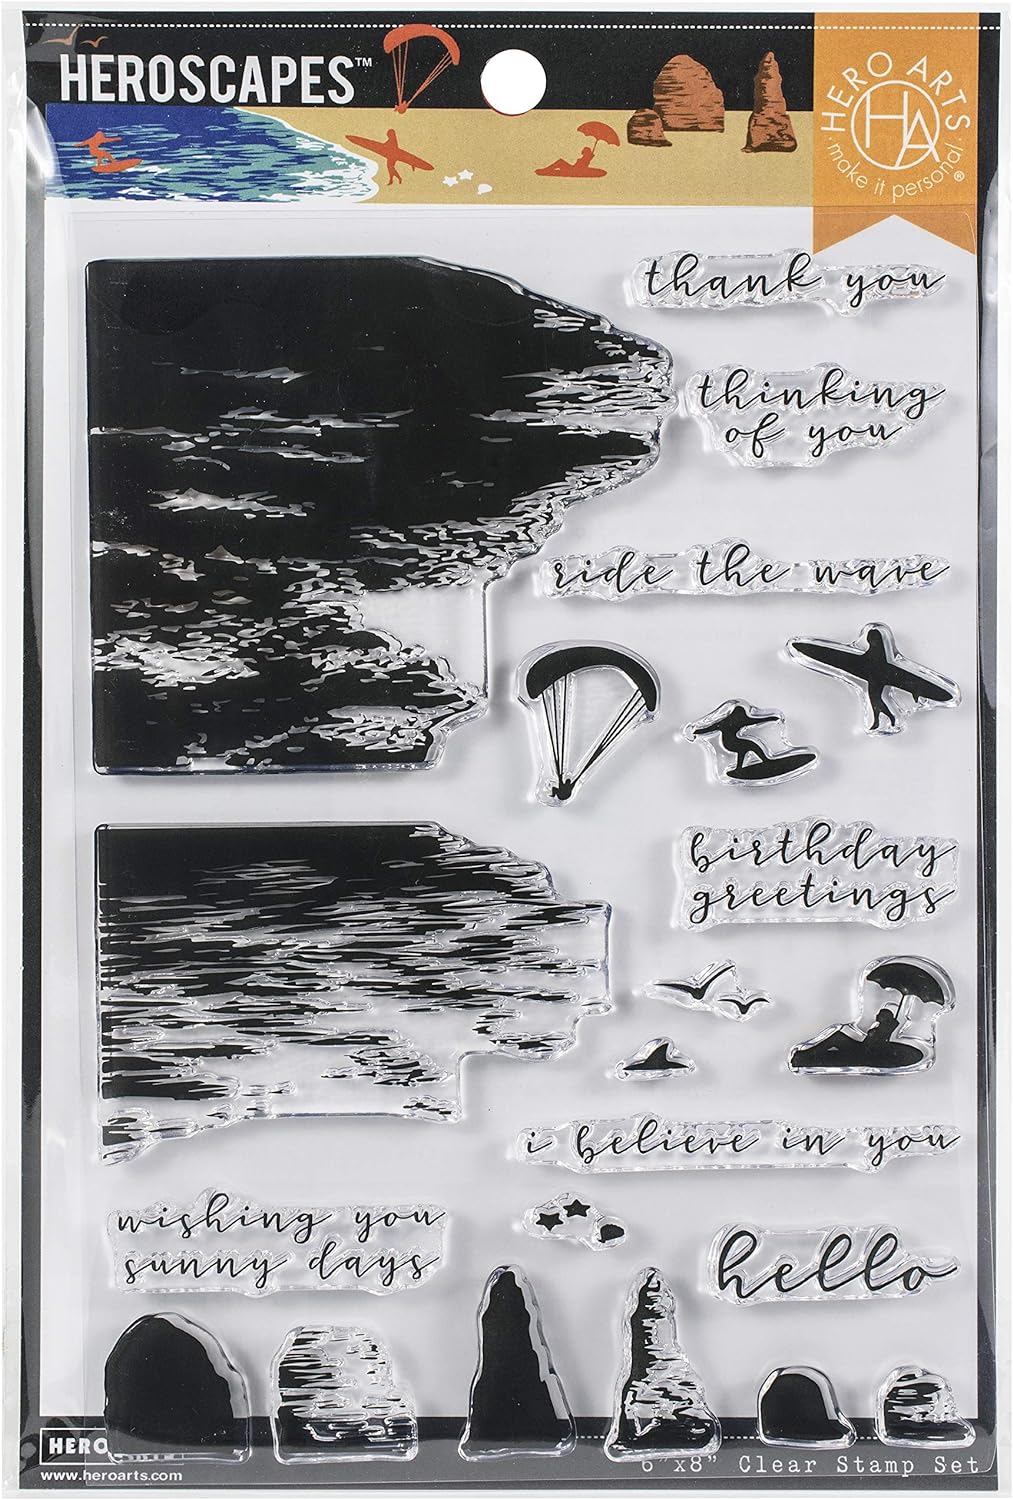 HEROSCAPES™
HERO ARTS
HA
make it personal®
thank you
thinking
of you
ride the wave
birthday
greetings
i believe in you
wishing you
sunny days
hello
HERO
www.heroarts.com
6"x8" Clear Stamp Set